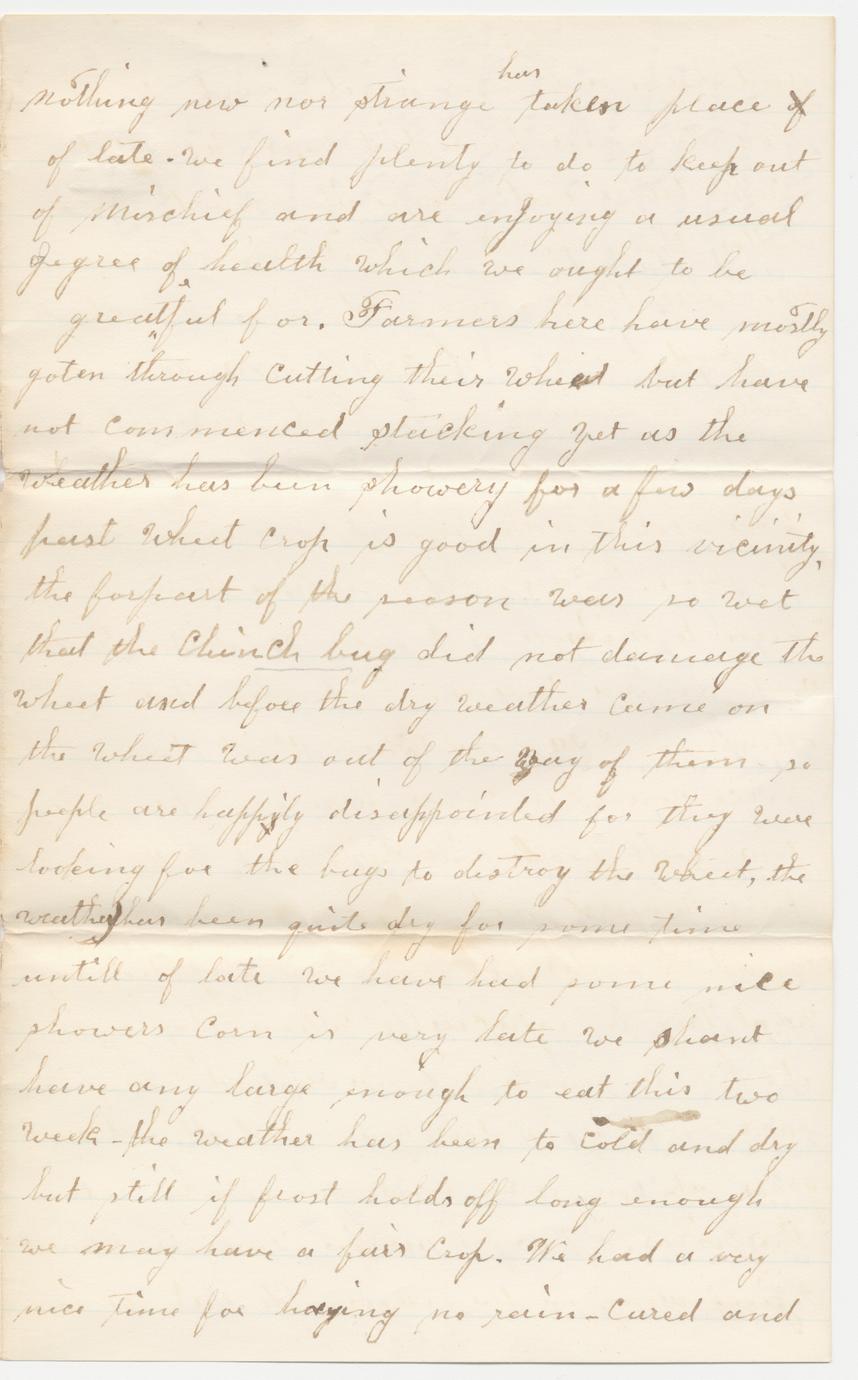 nothing new nor strange has taken place of
of late. we find plenty to do to keep out
of mischief and are enjoying a usual
degree of health which we ought to be
greateful for. Farmers here have mostly
goten through cutting their wheat but have
not commenced stacking yet as the
weather has been showery for a few days
past wheat crop is good in this vicinity,
the forpart of the season was so wet
that the Chinch bug did not damage the
wheet and before the dry weather came on
the wheat was out of the way of them so
people are happily disappointed for they were
looking for the bugs to destroy the wheet, the
weather has been quite dry for some time
untill of late we have had some nice
showers Corn is very late we shant
have any large enough to eat this two
week - the weather has been to cold and dry
but still if frost holds off long enough
we may have a fair crop. We had a very
nice time for haying no rain - Cured and